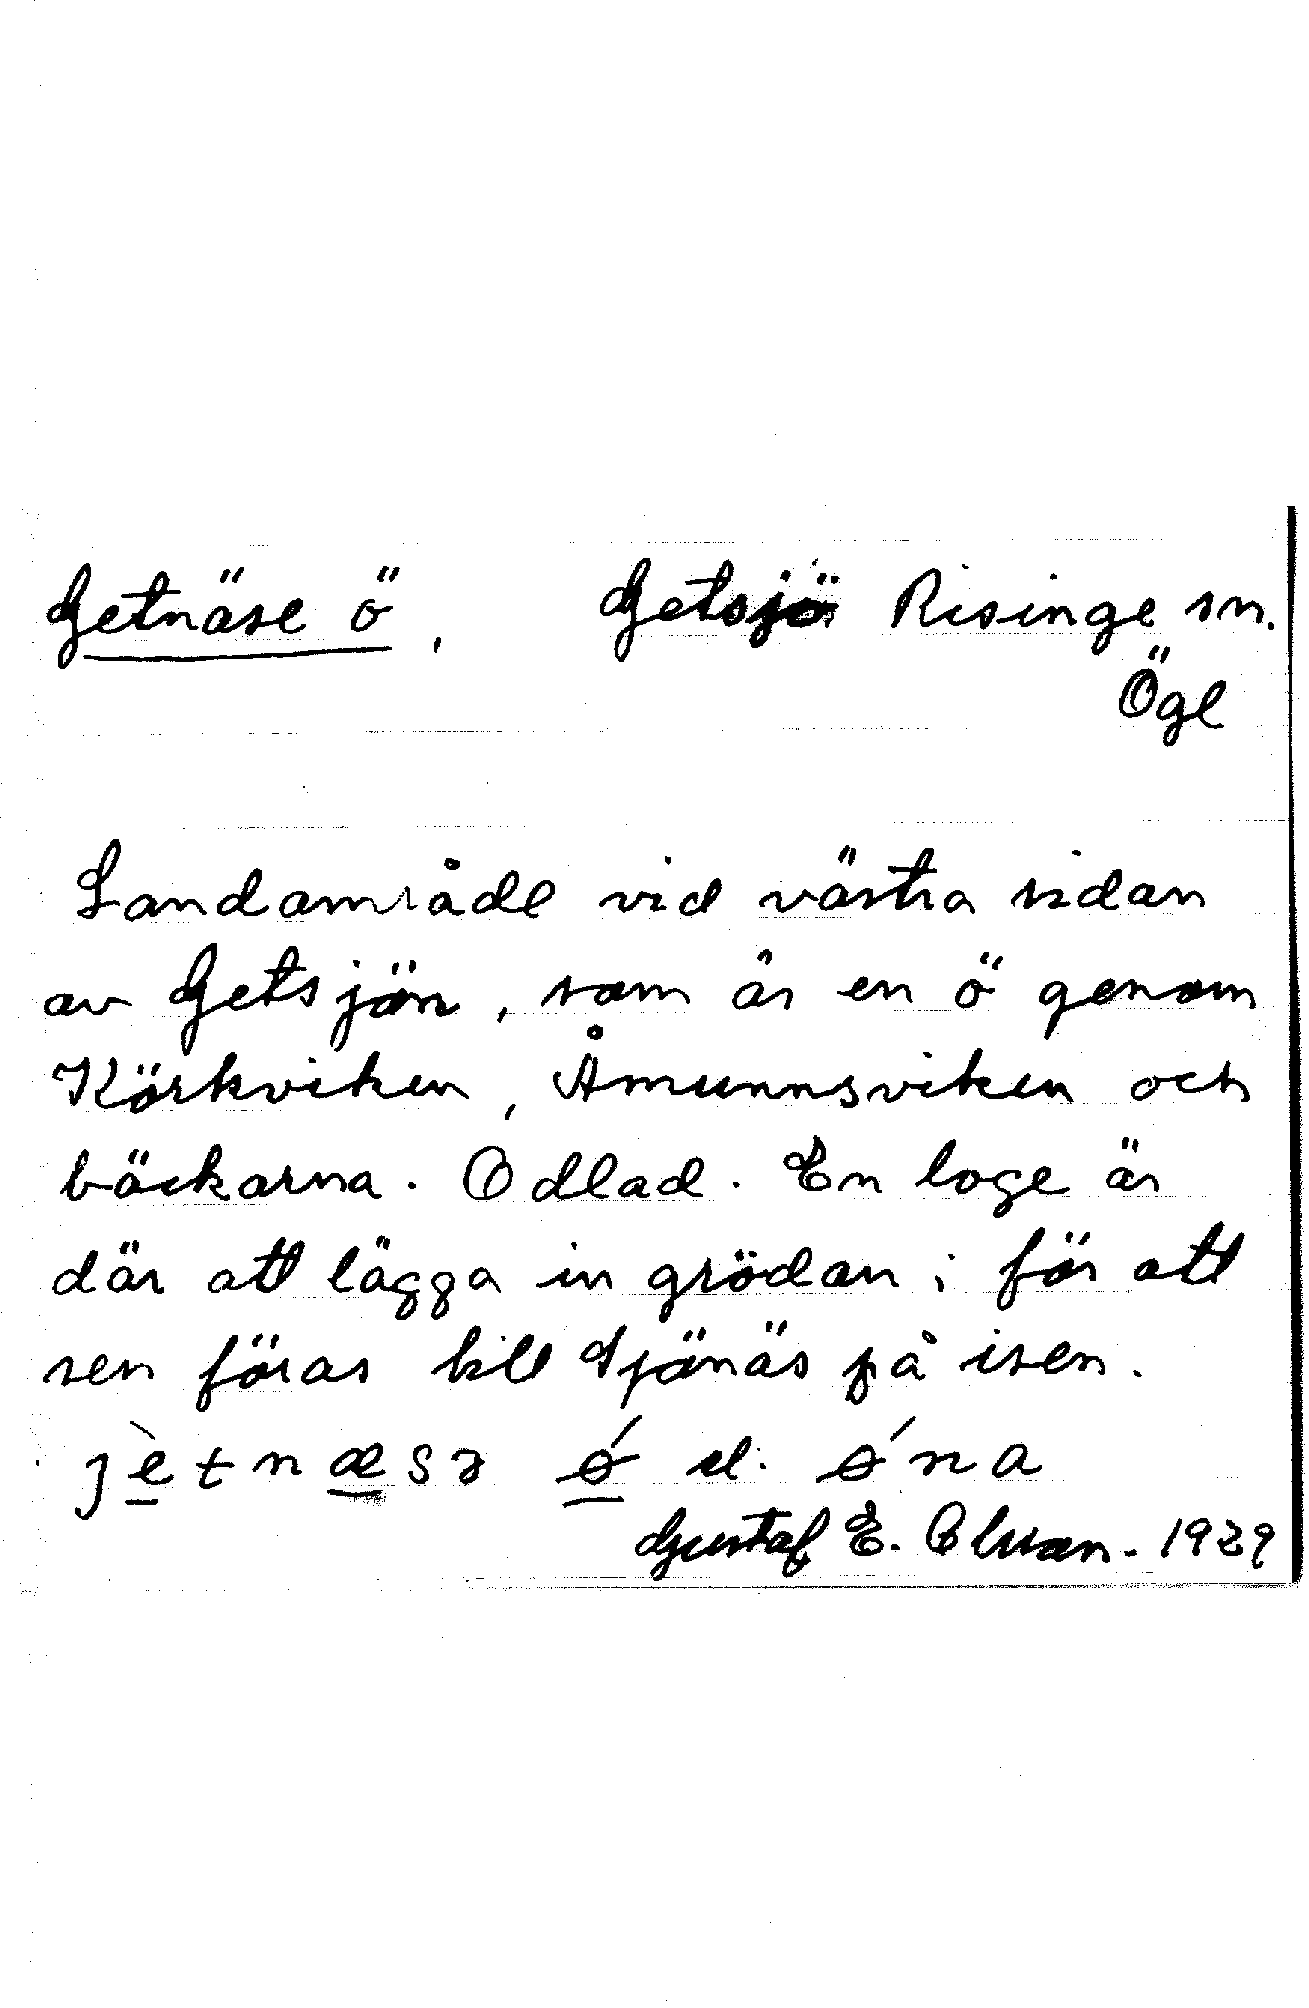 Getnäse ö, Getsjö Risinge sn.
Ögl
Landområde vid västra sidan
av Getsjön, som är en ö genom
Körkviken, Åmunnsviken och
bäckarna. Odlad. En loge är
där att lägga in grödan i för att
sen föras till Sjönäs på isen.
jè̱tnæ̱sə ǿ̱ el. ǿna
Gustaf E. Olsson. 1929